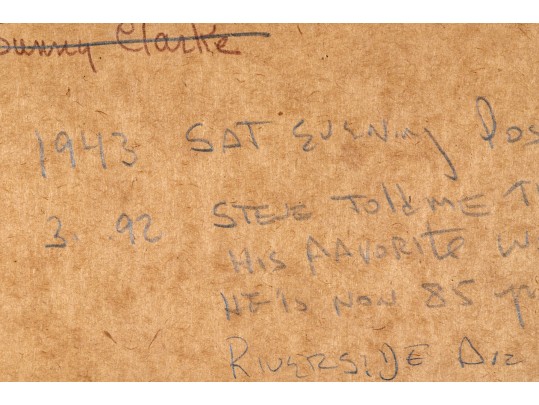 Sunny Clarke
1943 SAT EVENING POS
3. 92 STEVE TOLD ME T
HIS FAVORITE W
HE IS NOW 85
RIVERSIDE